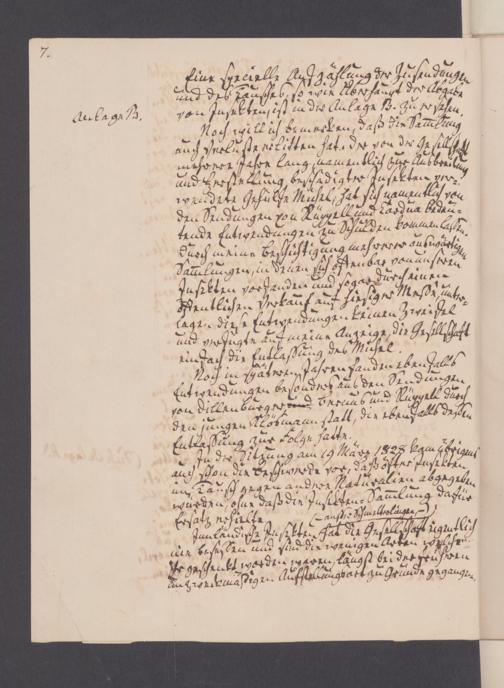 7.
Eine specielle Aufzählung der Zusendungen
und des Tausches, so wie überhaupt der Abgabe
von Insekten, ist in der Anlage B. zu ersehen.
Anlage B.
Noch will ich bemerken, daß die Sammlung
auch Verluste erlitten hat, der von der Gesellschaft
mehrere Jahre lang, namentlich zur Ausbreitung
und Herstellung beschädigter Insekten ver-
wendete Gehülfe Michel, hat sich namentlich von
den Sendungen von Rüppell und bedeu-
tende Entwendungen zu Schulden kommen lassen.
Durch meine Besichtigung mehrerer auswärtigen
Sammlungen, in denen sich offenbar von unseren
Insekten vorfanden und sogar durch einen
öffentlichen Verkauf auf hiesiger Messe, unter-
lagen diese Entwendungen keinen Zweifel
und verfügte auf meine Anzeige, die Gesellschaft
einfach die Entlassung des Michel.
Noch in späteren Jahren fanden ebenfalls
Entwendungen besonders aus den Sendungen
von Dillenburger und Rüppell durch
den jungen statt, die ebenfalls dessen
Entlassung zur Folge hatte.
In der Sitzung am 19 März 1828 kam übrigens
auch schon die Beschwerde vor, daß öfter Insekten
im Tausch gegen andere Naturalien abgegeben
wurden, ohne daß die Insekten-Sammlung dafür
Ersatz erhielte.
Inländische Insekten hat die Gesellschaft eigentlich
nie besessen und sind die wenigen Arten welche
ihr geschenkt worden waren, längst bei der früheren
unzweckmäßigen Aufstellungsart zu Grunde gegangen.